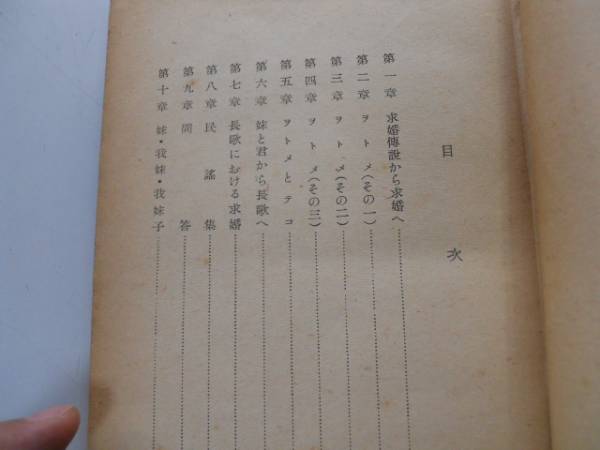 目次
第一章 求婚傳說から求婚へ
第二章 ヲトメ(その一)
第三章 ヲトメ(その二)
第四章 ヲトメ(その三)
第五章 ヲトメとテコ
第六章 妹と君から長歌へ
第七章 長歌における求婚
第八章 民謠集
第九章 問答
第十章 妹・我妹・我妹子